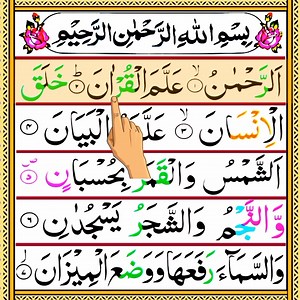 بِسْمِ اللهِ الرَّحْمٰنِ الرَّحِيْمِ
اَلرَّحْمٰنُ ۝١ عَلَّمَ الْقُرْاٰنَ ۝٢ خَلَقَ
الْاِنْسَانَ ۝٣ عَلَّمَهُ الْبَيَانَ ۝٤
اَلشَّمْسُ وَالْقَمَرُ بِحُسْبَانٍ ۝٥
وَّالنَّجْمُ وَالشَّجَرُ يَسْجُدٰنِ ۝٦
وَالسَّمَآءَ رَفَعَهَا وَوَضَعَ الْمِيْزَانَ ۝٧